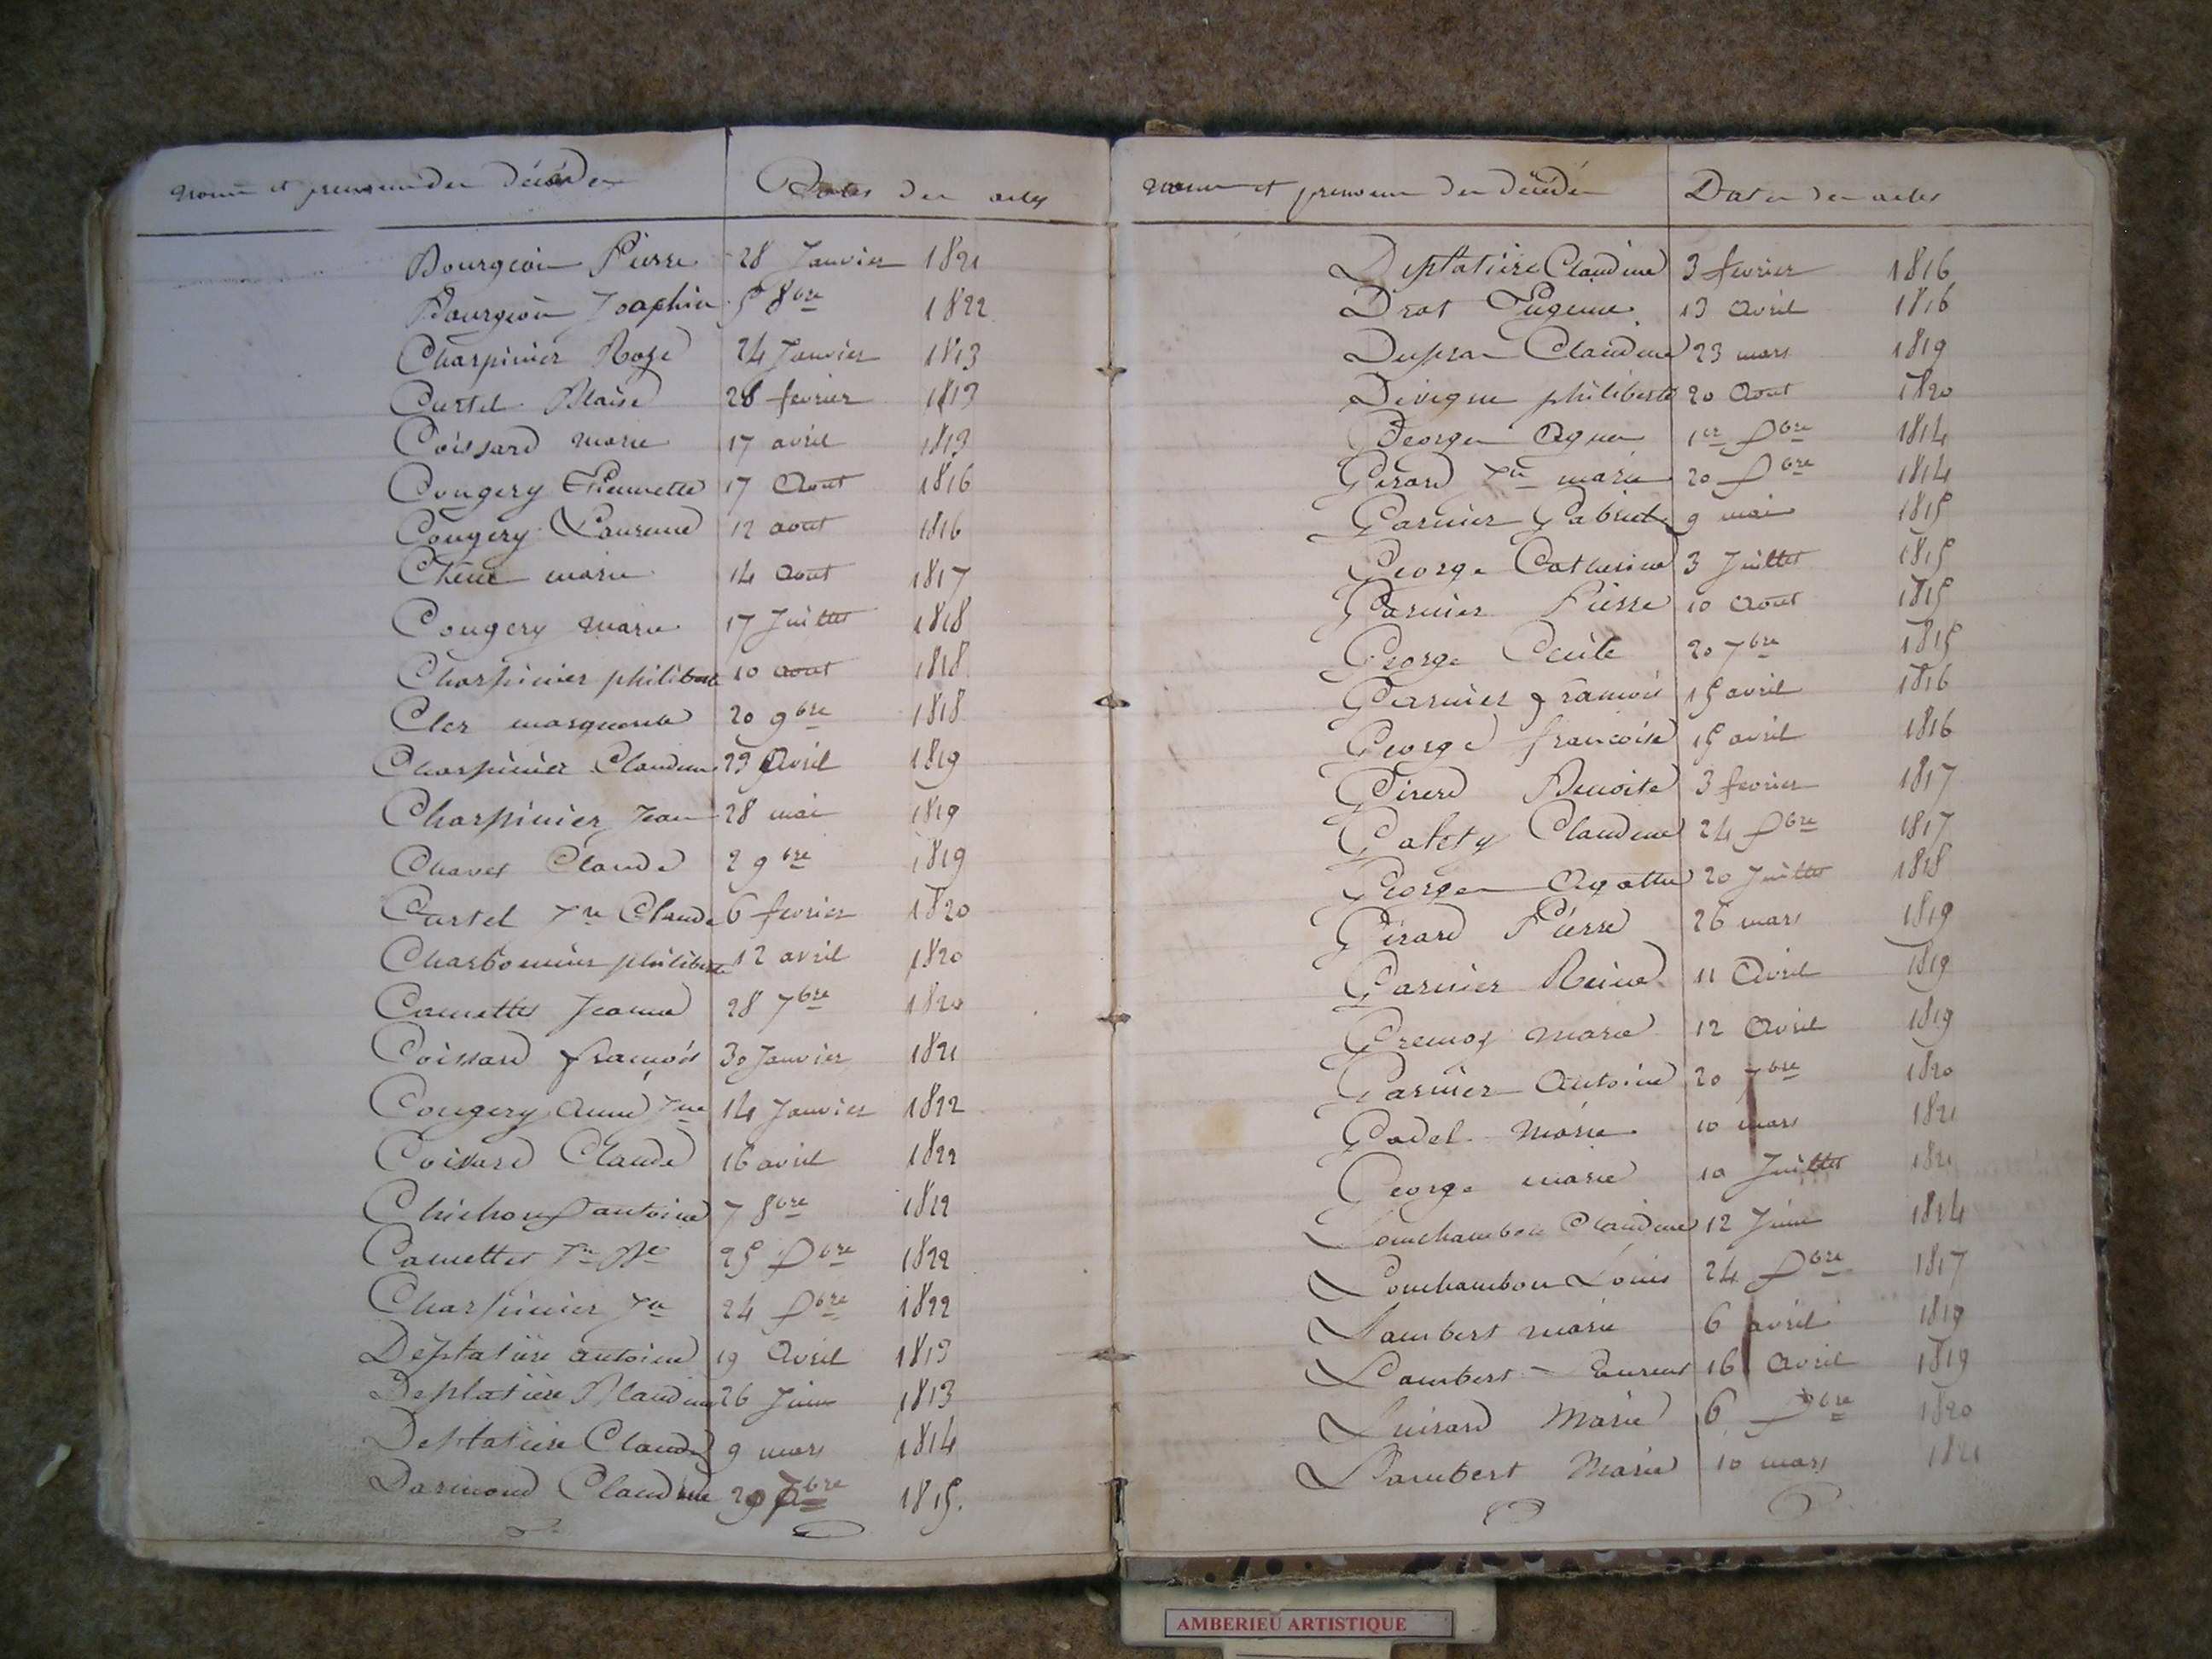 noms et prenoms des décédés Dates des actes
Bourgeois Pierre 28 Janvier 1821
Bourgeois Josephine 5 8bre 1822
Charpinier Rose 24 Janvier 1813
Curtel Blaise 28 fevrier 1813
Coissard marie 17 avril 1813
Cougery Pierrette 17 Aout 1816
Cougery Laurence 12 aout 1816
Chêne marie 14 Aout 1817
Cougery marie 17 Juillet 1818
Charpinier philiberte 10 aout 1818
Cler marguerite 20 9bre 1818
Charpinier Claudine 23 Avril 1819
Charpinier Jean 28 mai 1819
Chavet Claude 2 9bre 1819
Curtel Claude 6 fevrier 1820
Charbonnier philiberte 12 avril 1820
Camettes Jeanne 28 7bre 1820
Coissard françois 30 Janvier 1821
Cougery Anne Jne 14 Janvier 1822
Coissard Claude 16 avril 1822
Antoine 7 8bre 1822
Camettes 25 Xbre 1822
Charpinier 24 Xbre 1822
Deplatière antoine 19 Avril 1813
Deplatière Blandine 26 Juin 1813
Deplatière Claude 9 mars 1814
Darmond Claudine 1815.
noms et prenoms des décédés Dates des actes
Deplatière Claudine 3 fevrier 1816
Drot Eugenie 13 Avril 1816
Dupras Claudine 23 mars 1819
philiberte 20 Aout 1820
George Agnes 1er Xbre 1814
Girard marie 20 Xbre 1814
Garnier Gabriel 9 mai 1815
George Catherine 3 Juillet 1815
Garnier Pierre 10 Aout 1815
George Cecile 20 7bre 1815
Garnier françois 15 avril 1816
George françoise 15 avril 1816
Girerd Benoite 3 fevrier 1817
Galety Claudine 24 Xbre 1817
George Agathe 20 Juillet 1818
Girard Pierre 26 mars 1819
Garnier Reine 11 Avril 1819
marie 12 Avril 1819
Garnier Antoine 20 7bre 1820
Godel Marie 10 mars 1821
George marie 10 Juillet 1821
Lonchambon Claudine 12 Juin 1814
Lonchambon Louis 24 Xbre 1817
Lambert marie 6 avril 1819
Lambert Laurent 16 Avril 1819
Luirard Marie 6 1820
Lambert Marie 10 mars 1821
AMBERIEU ARTISTIQUE